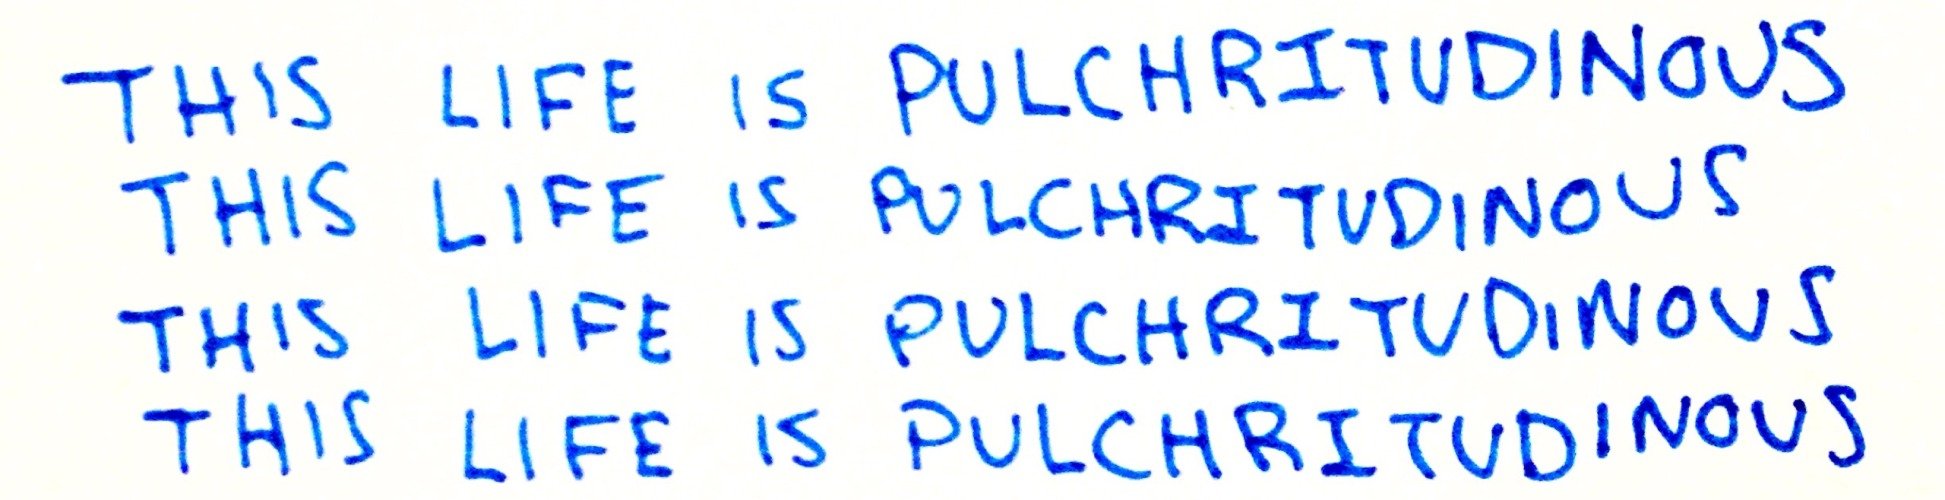 THIS LIFE IS PULCHRITUDINOUS
THIS LIFE IS PULCHRITUDINOUS
THIS LIFE IS PULCHRITUDINOUS
THIS LIFE IS PULCHRITUDINOUS